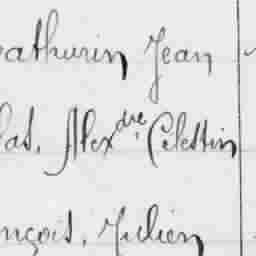 athurin Jean
las, Alex^dre Celestin
nçois, Julien